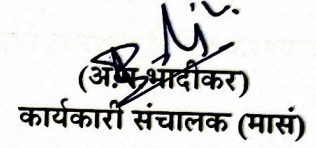 (अ.प.भादीकर)
कार्यकारी संचालक (मासं)